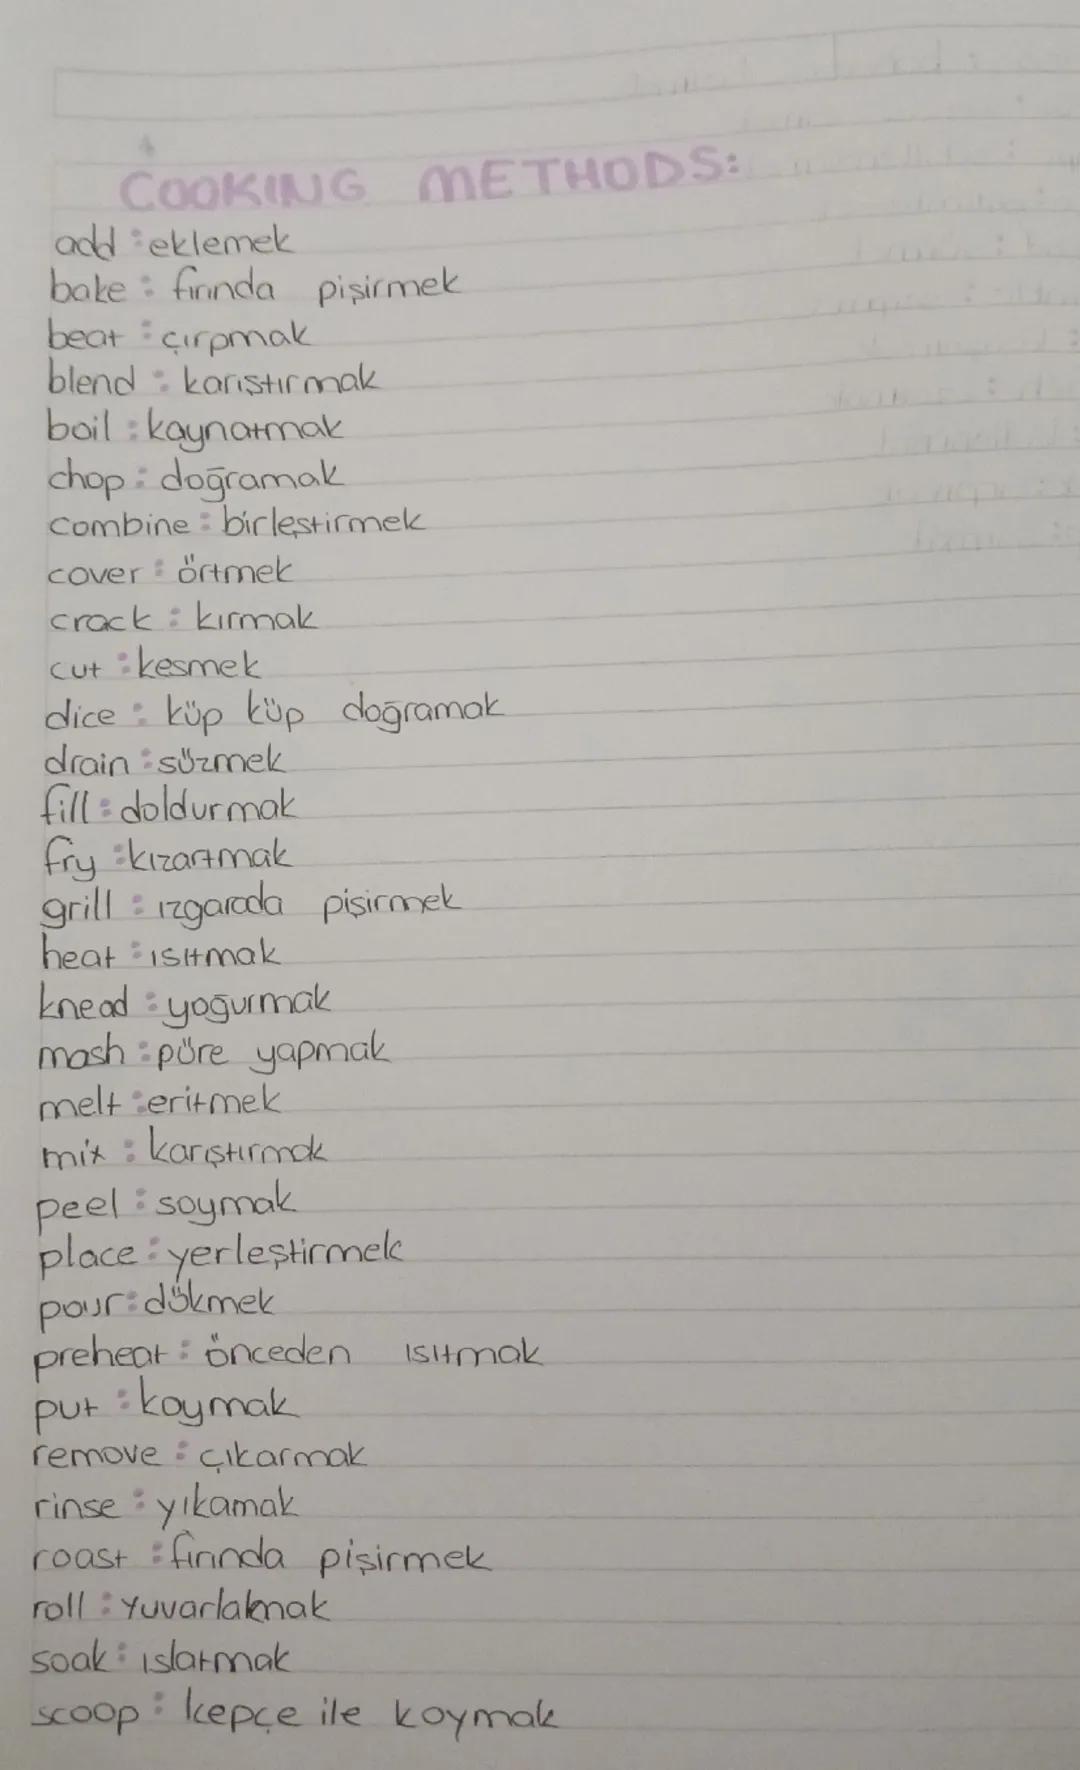 COOKING METHODS:
add : eklemek
bake : fırında pişirmek
beat : çırpmak
blend : karıştırmak
boil : kaynatmak
chop : doğramak
combine : birleştirmek
cover : örtmek
crack : kırmak
cut : kesmek
dice : küp küp doğramak
drain : süzmek
fill : doldurmak
fry : kızartmak
grill : ızgarada pişirmek
heat : ısıtmak
knead : yoğurmak
mash : püre yapmak
melt : eritmek
mix : karıştırmak
peel : soymak
place : yerleştirmek
pour : dökmek
preheat : önceden ısıtmak
put : koymak
remove : çıkarmak
rinse : yıkamak
roast : fırında pişirmek
roll : yuvarlakmak
soak : ıslatmak
scoop : kepçe ile koymak